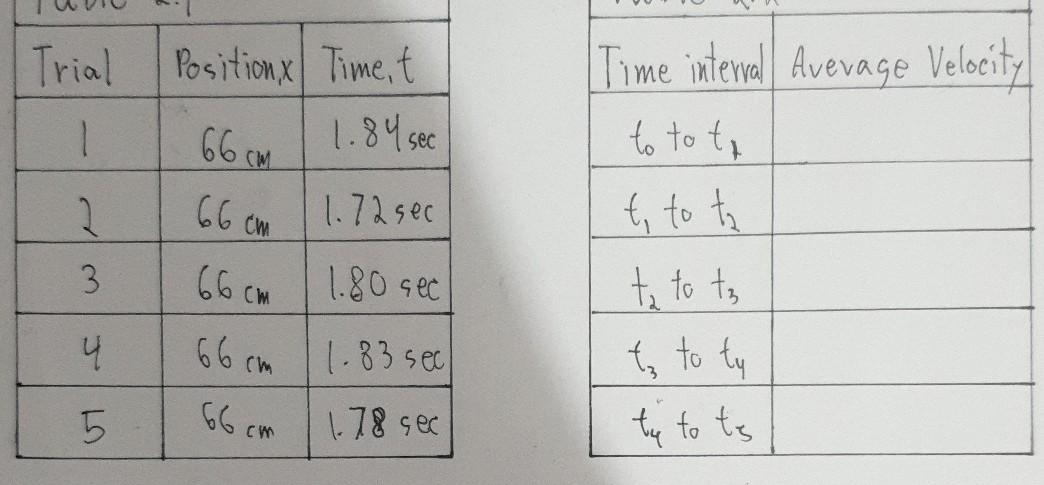 Trial Position,x Time,t
1 66 cm 1.84 sec
2 66 cm 1.72 sec
3 66 cm 1.80 sec
4 66 cm 1.83 sec
5 66 cm 1.78 sec
Time interval Average Velocity
t₀ to t₁
t₁ to t₂
t₂ to t₃
t₃ to t₄
t₄ to t₅